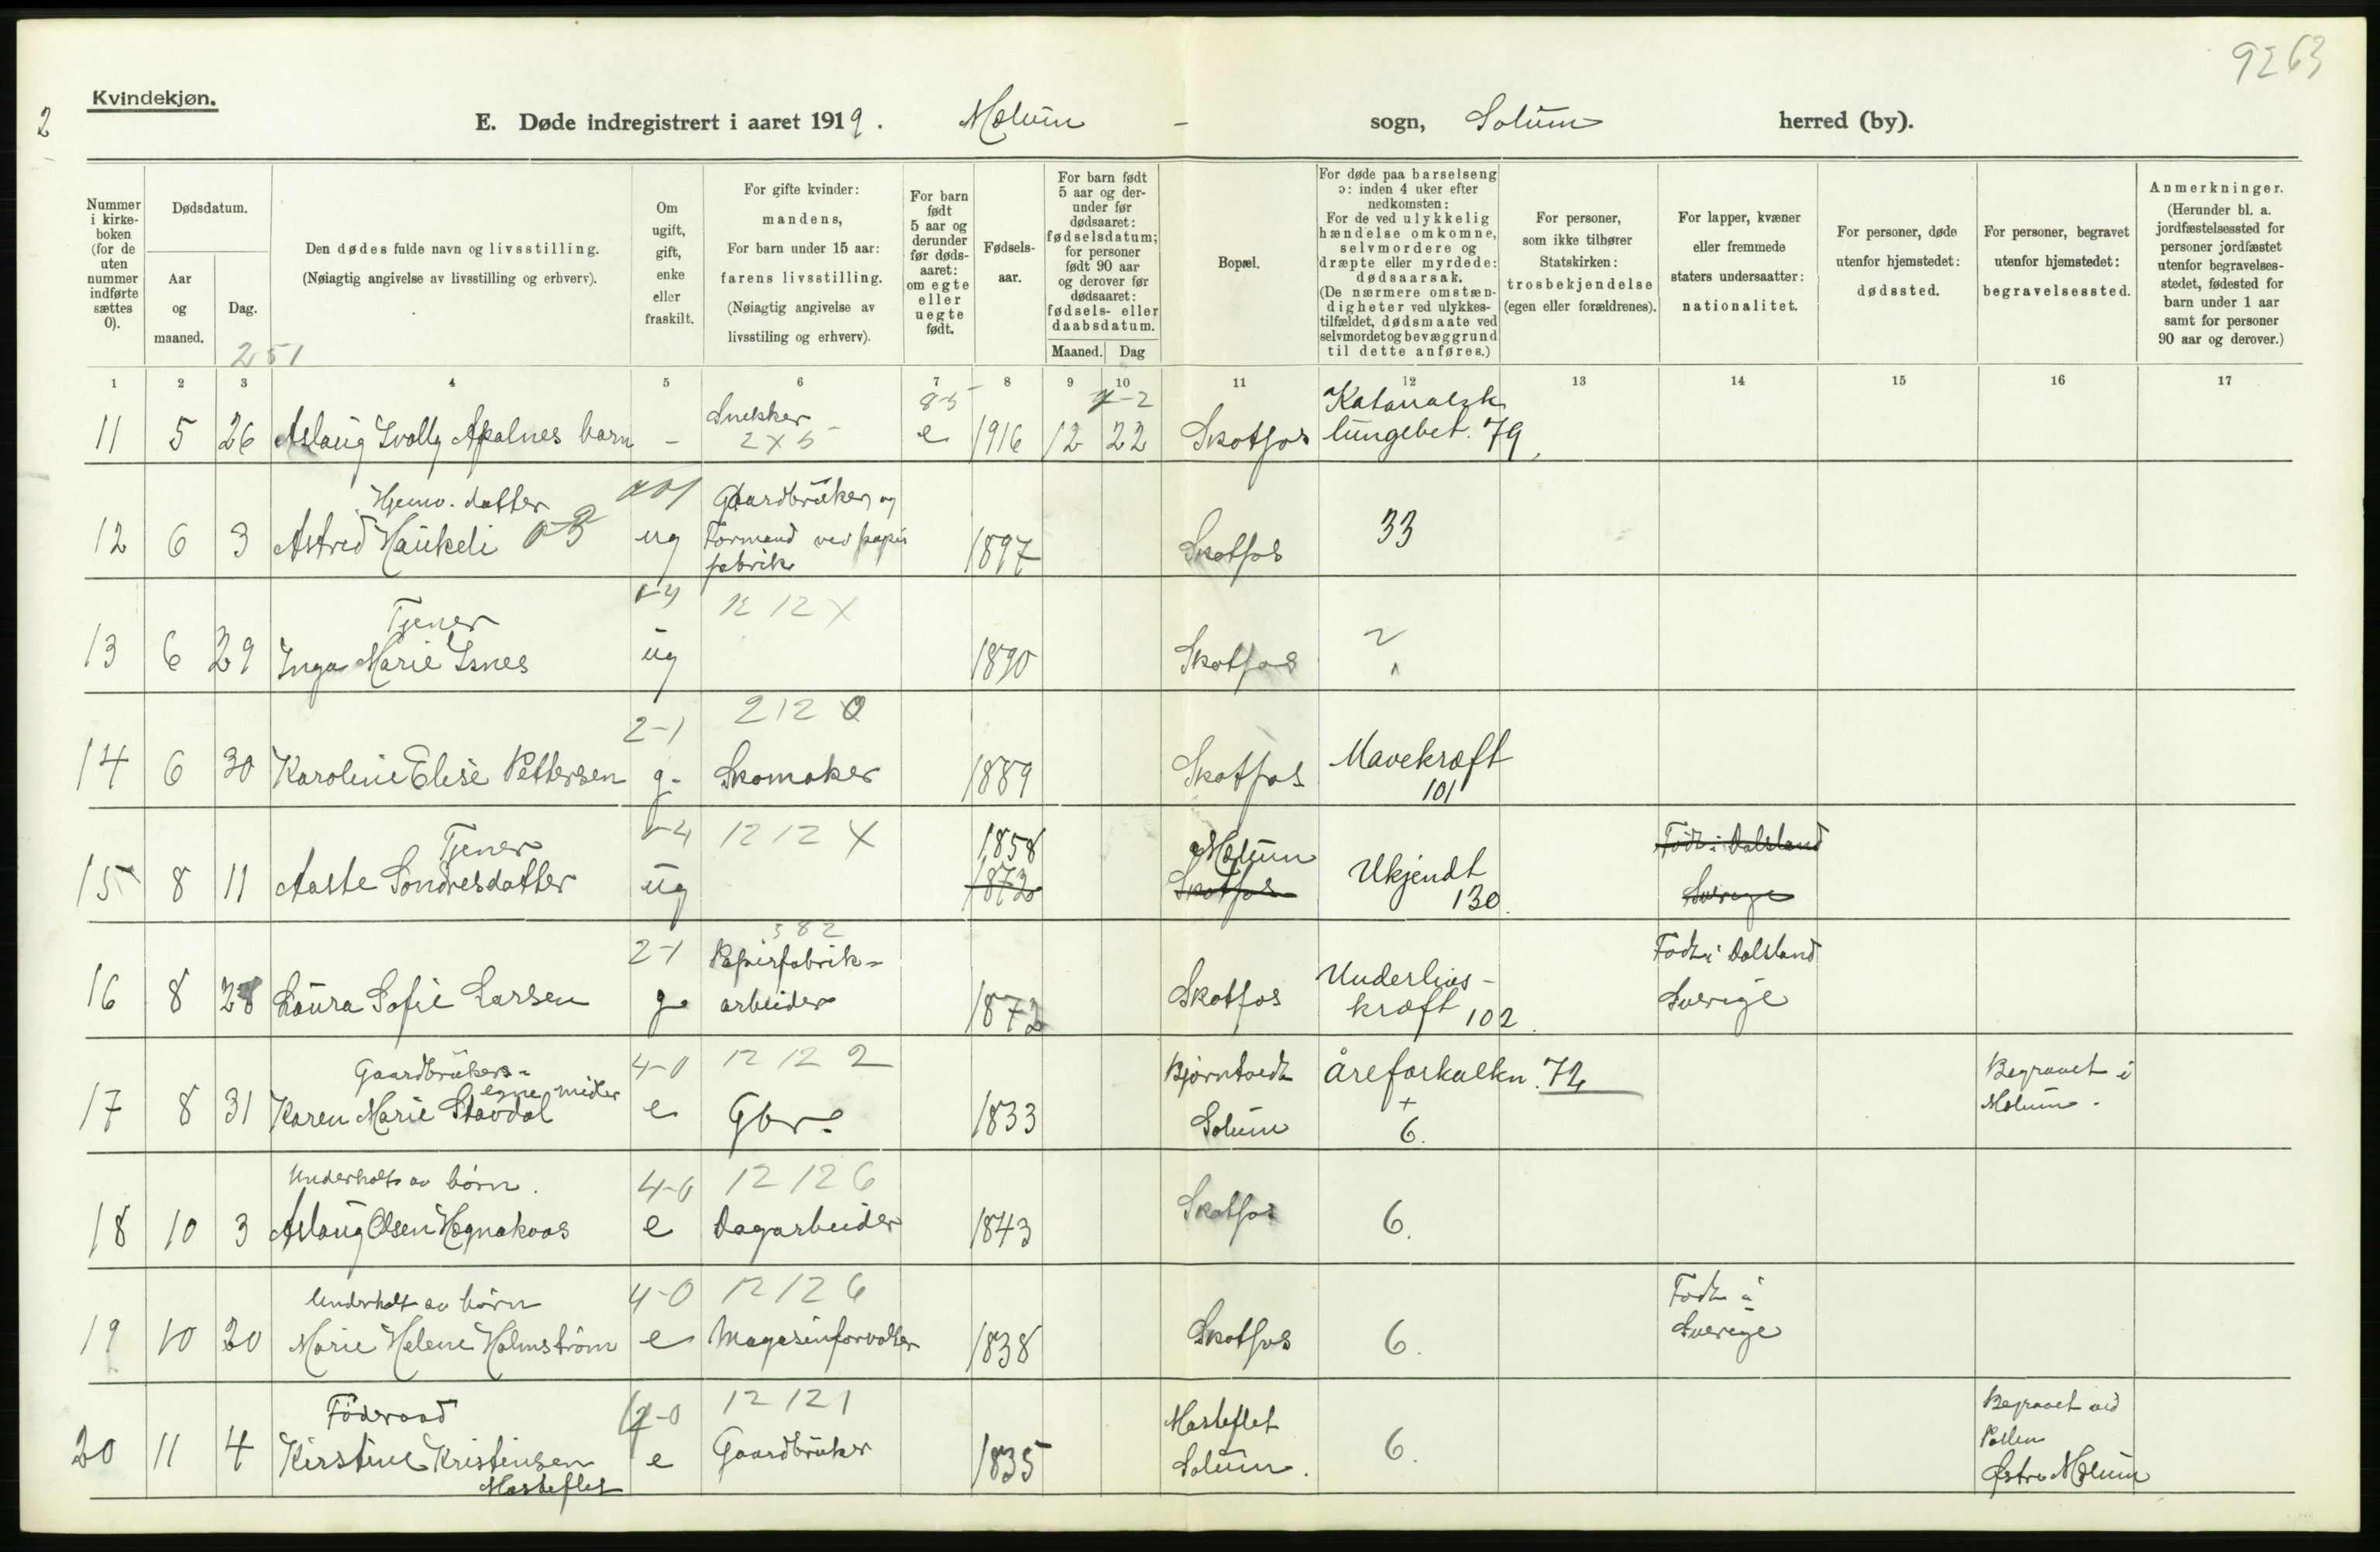 9263
Kvindekjøn.
2
E. Døde indregistrert i aaret 1919. Mælum - sogn, Solum herred (by).
Nummer i kirkeboken (for de uten nummer indførte sættes 0).
Dødsdatum.
Aar og maaned.
Dag.
Den dødes fulde navn og livsstilling.
(Nøiagtig angivelse av livsstilling og erhverv).
Om ugift, gift, enke eller fraskilt.
For gifte kvinder: mandens,
For barn under 15 aar: farens livsstilling.
(Nøiagtig angivelse av livsstiling og erhverv).
For barn født 5 aar og derunder før dødsaaret: om egte eller uegte født.
Fødselsaar.
For barn født 5 aar og derunder før dødsaaret: fødselsdatum; for personer født 90 aar og derover før dødsaaret: fødsels- eller daabsdatum.
Maaned. Dag
Bopæl.
For døde paa barselseng ɔ: inden 4 uker efter nedkomsten:
For de ved ulykkelig hændelse omkomne, selvmordere og dræpte eller myrdede: dødsaarsak.
(De nærmere omstændigheter ved ulykkestilfældet, dødsmaate ved selvmordet og bevæggrund til dette anføres.)
For personer, som ikke tilhører Statskirken: trosbekjendelse (egen eller forældrenes).
For lapper, kvæner eller fremmede staters undersaatter: nationalitet.
For personer, døde utenfor hjemstedet: dødssted.
For personer, begravet utenfor hjemstedet: begravelsessted.
Anmerkninger.
(Herunder bl. a. jordfæstelsessted for personer jordfæstet utenfor begravelsesstedet, fødested for barn under 1 aar samt for personer 90 aar og derover.)
251
1 2 3 4 5 6 7 8 9 10 11 12 13 14 15 16 17
Snekker 85 Katarralsk
11 5 26 Aslaug Svolly Apalnes barn - 2x5 e 1916 12 22 Skotfos lungebet. 79
Hjemv. datter Gaardbruker og
12 6 3 Astrid Haukeli ug Formand ved papir 1897 Skotfos 33
fabrik
Tjener 12 12 X
13 6 29 Inga Marie Isnes ug 1890 Skotfos ?
2-1 212 0
14 6 30 Karoline Elise Pettersen g. Skomaker 1889 Skotfos Mavekræft
101
Tjener 12 12 X 1858 Mælum Født i Dalsland
15 8 11 Aaste Sondresdatter ug 1872 Skotfos Ukjendt 130 Sverige
2-1 382 Papirfabrik- Underlivs- Født i Dalsland
16 8 28 Laura Sofie Larsen g arbeider 1872 Skotfos kræft 102 Sverige
Gaardbrukers- 4-0 12 12 2 Bjørntvedt Åreforkalkn. 72 Begravet i
egne midler + Mælum.
17 8 31 Karen Marie Stavdal e Gbr. 1833 Solum 6.
Underholdt av børn. 4-0 12 12 6
18 10 3 Aslaug Olsen Hegnakaas e Dagarbeider 1843 Skotfos 6.
Underholdt av børn 4-0 12 12 6 Født i
19 10 20 Marie Helene Holmstrøm e Magasinforvalter 1838 Skotfos 6. Sverige
Føderaad 12 12 1 Masteflet Begravet ved
20 11 4 Kirstine Kristensen e Gaardbruker 1835 Solum. 6. Østre Mælum
Masteflet